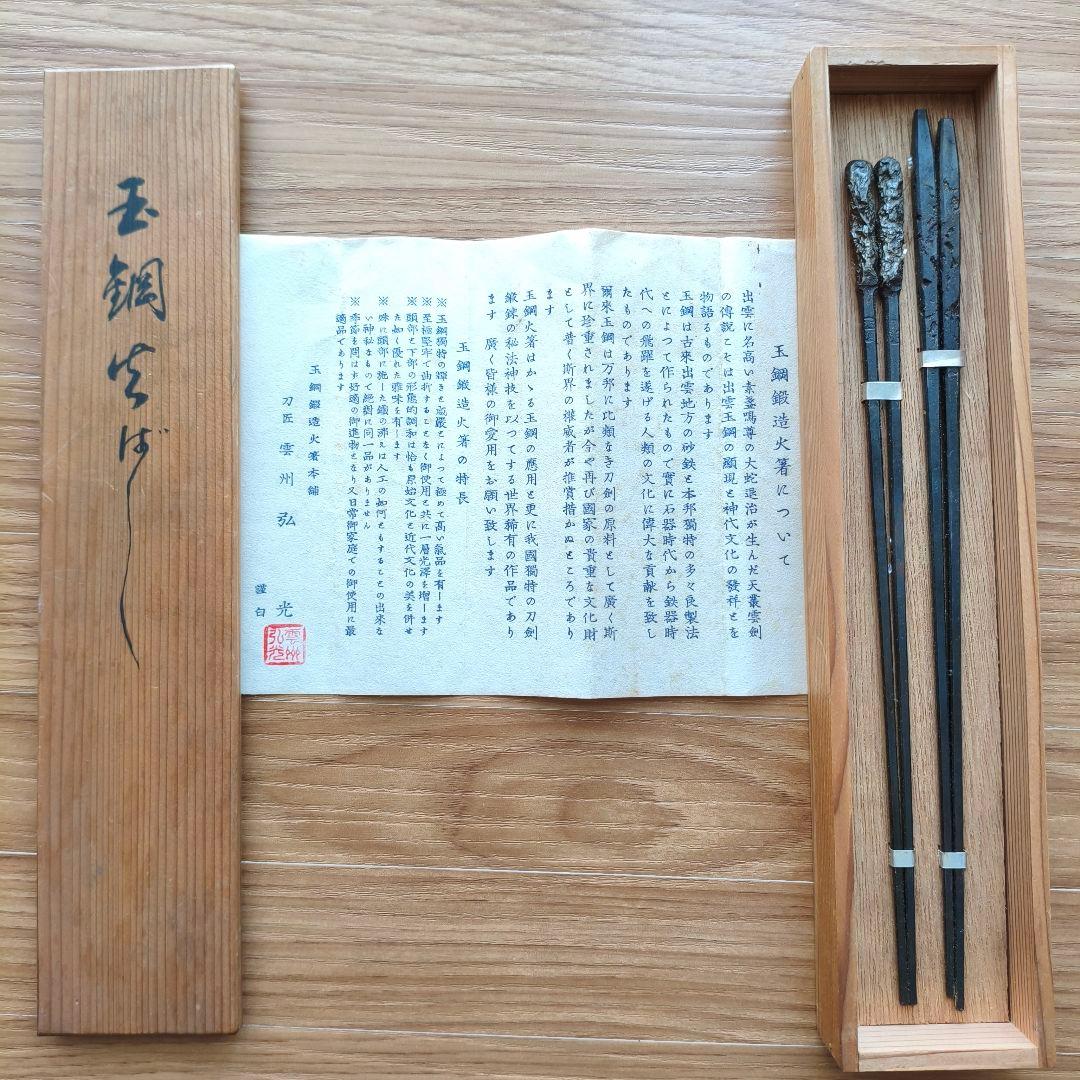 玉鋼火ばし
玉鋼鍛造火箸について
出雲に名高い素盞嗚尊の大蛇退治が生んだ天叢雲劍
の傳説こそは出雲玉鋼の顯現と神代文化の發祥とを
物語るものであります
玉鋼は古來出雲地方の砂鉄と本邦獨特の多々良製法
とによつて作られたもので實に石器時代から鉄器時
代への飛躍を遂げる人類の文化に偉大な貢献を致し
たものであります
爾來玉鋼は万邦に比類なき刀劍の原料として廣く斯
界に珍重されましたが今や再び國家の貴重な文化財
として普く斯界の權威者が推賞措かぬところであり
ます
玉鋼火箸はかゝる玉鋼の應用と更に我國獨特の刀劍
鍛錬の秘法神技を以つてする世界稀有の作品であり
ます 廣く皆様の御愛用をお願い致します
玉鋼鍛造火箸の特長
※玉鋼獨特の輝きと荘嚴さによつて極めて高い氣品を有します
※至極堅牢で曲折することなく御使用と共に一層光澤を増します
※頭部と下部の形態的調和は恰も原始文化と近代文化の美を併せ
た如く優れた雅味を有します
※殊に頭部に施した鐵の冴えは人工の如何ともすることの出來な
い神秘なもので絶對に同一品がありません
※季節を問はず好適の御進物となり又日常御家庭での御使用に最
適品であります
玉鋼鍛造火箸本舗
刀匠 雲州 弘光
謹白
雲州弘光